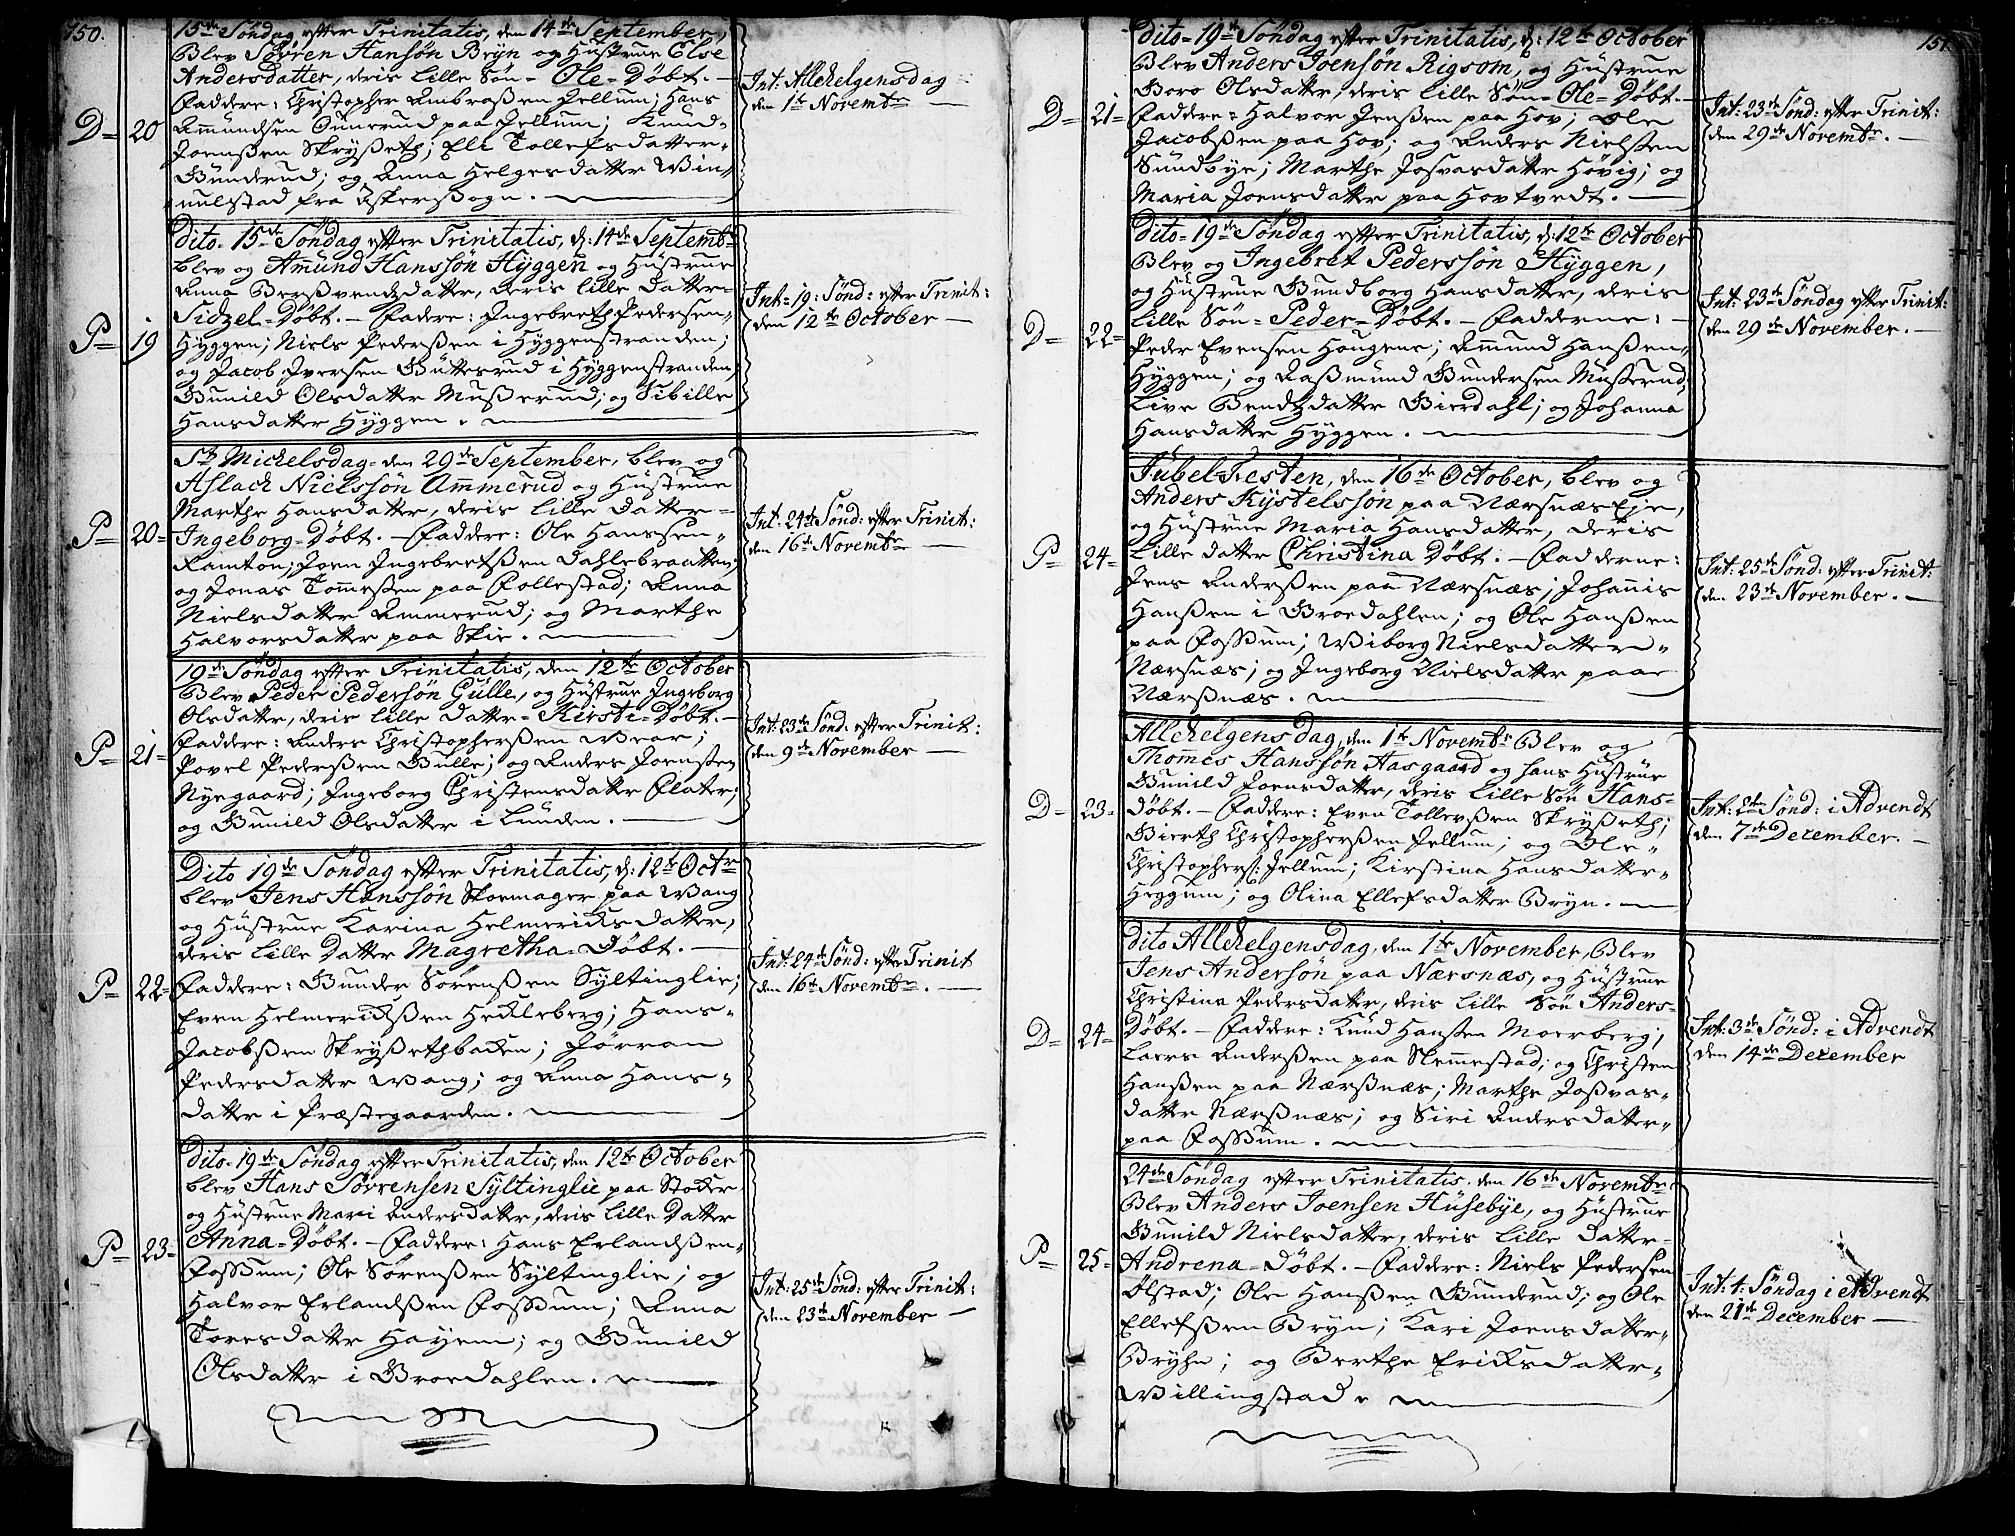 150.
15de Søndag efter Trinitatis, den 14de September,
Blev Søren Hansøn Bryn og Hustrue Else
Andersdatter, deris lille Søn = Ole = Døbt. —
Faddere: Christopher Ambroßen Jellum; Hans
Ammundsen Gunerud paa Jellum; Knud
Joensßen Skryßeth; Eli Tollefsdatter
Bunderud; og Anna Helgesdatter Win-
nulstad fra Askersogn.
D = 20
Int: Allehelgensdag
den 1te Novembr
Dito = 15de Søndag efter Trinitatis, d: 14de Septembr
blev og Amund Hanssøn Hyggen og Hustrue
Anna Berßvendsdatter, deris lille Datter =
Sidzel = Døbt. — Fadere: Ingebreth Pedersen
Hyggen; Niels Pederßen i Hyggenstranden;
og Jacob Iversen Buttesrud i Hyggenstranden;
Gunild Olsdatter Mußerud; og Sibille
Hansdatter Hyggen.
P = 19
Int = 19: Sønd: efter Trinit:
den 12te October —
St Michelsdag = den 29de September, blev og
Aslach Nielssøn Ammerud og Hustrue
Marthe Hansdatter, deris lille Datter =
Ingeborg = Døbt. — Faddere: Ole Hanssen
Ramton; Joen Ingebretßen Dahlebraatten;
og Jonas Tommeßen paa Follestad; Anna
Nielsdatter Ammerud; og Marthe
Halvorsdatter paa Skie.
P = 20 =
Int: 24de Sønd: efter Trinit:
den 16de Novembr —
19de Søndag efter Trinitatis, den 12te October
Blev Peder Pedersøn Gulle, og Hustrue Ingeborg
Olsdatter, deris lille Datter = Kirsti = Døbt. —
Faddere: Anders Christopherßen Wear;
Povel Pederßen Gulle; og Anders Joenßen
Nyegaard; Ingeborg Christensdatter Flater;
og Gunild Olsdatter i Lunden.
P = 21 =
Int: 23de Sønd: efter Trinit:
den 9de November —
Dito 19de Søndag efter Trinitatis, d: 12te Octr
blev Jens Hanssøn Skoemager paa Wang
og Hustrue Karina Helmericksdatter,
deris lille Datter Magretha = Døbt. —
Faddere: Gunder Sørenßen Syltinglie;
Even Helmerickßen Heckleberg; Hans
Jacobßen Skryßethbacken; Jørran
Pedersdatter Wang; og Anna Hans-
datter i Præstegaarden.
P = 22 =
Int: 24de Sønd: efter Trinit
den 16de Novembr. —
Dito = 19de Søndag efter Trinitatis, den 12te October
blev Hans Sørrensen Syltinglie paa Stocker
og Hustrue Mari Andersdatter, deris lille Datter
Anna = Døbt. — Faddere: Hans Erlandßen
Foßum; Ole Sørenßen Syltinglie; og
Halvor Erlandßen Foßum; Anna
Toresdatter Hayem; og Gunild
Olsdatter i Broedahlen.
P = 23 =
Int: 25de Sønd: efter Trinit:
den 23de November —
151.
Dito = 19de Søndag efter Trinitatis, d: 12te October
Blev Anders Joensøn Rigsom, og Hustrue
Boro Olsdatter, deris lille Søn = Ole = Døbt. —
Faddere = Halvor Jenßen paa Hov; Ole
Jacobßen paa Hov; og Anders Nielsßen
Sundbye; Marthe Josvasdatter Høvig; og
Maria Joensdatter paa Hovtvedt. —
D = 21 =
Int: 23de Sønd: efter Trinit:
den 29de Novembr. —
Dito = 19de Søndag efter Trinitatis, d: 12te October
Blev og Ingebret Pederssøn Hyggen,
og Hustrue Gundborg Hansdatter, deris
lille Søn = Peder = Døbt. — Fadderne: —
Peder Evensen Hougene; Ammund Hanßen
Hyggen; og Raßmund Gundersen Mußerud;
Live Bendtzdatter Bierdahl; og Johanna
Hansdatter Hyggen.
D = 22 =
Int: 23de Søndag efter Trinit:
den 29de November. —
Jubel-Festen, den 16de October, blev og
Anders Kystelssøn paa NærsnæsEye,
og Hustrue Maria Hansdatter, deris
lille datter Christina Døbt: — Fadderne:
Jens Anderßen paa Nærsnæs; Johannis
Hanßen i Broedahlen; og Ole Hanßen
paa Foßum; Wiborg Nielsdatter
Nærsnæs; og Ingeborg Nielsdatter paa
Nærßnæs.
P = 24 =
Int: 25de Sønd: efter Trinit:
den 23de November. —
Allehelgensdag, den 1te Novembr Blev og
Thommes Hanssøn Aasgaard og hans Hustrue
Gunild Joensdatter, deris lille Søn Hans =
Døbt. — Faddere: Even Tollevßen Skryßeth;
Bierth Christopherßen Jellum; og Ole
Christophers: Jellum; Kirstina Hansdatter
Heggum; og Olina Ellefsdatter Bryn. —
D = 23 =
Int: 2den Sønd: i Advendt
den 7de December. —
Dito Allehelgensdag, den 1te November, Blev
Jens Andersøn paa Nærsnæs, og Hustrue
Christina Pedersdatter, deris lille Søn Anders =
Døbt. — Faddere: Knud Hansßen Moerberg;
Laers Anderßen paa Slemmestad; og Christen
Hanßen paa Nærßnæs; Marthe Joßvas-
datter Nærßnæs; og Siri Andersdatter
paa Foßum.
D = 24 =
Int: 3de Sønd: i Advendt
den 14de December
24de Søndag efter Trinitatis, den 16de Novembr
Blev Anders Joensen Husebye, og Hustrue
Gunild Nielsdatter, deris lille Datter =
Andrena = Døbt. — Faddere: Niels Pedersen
Olstad; Ole Hanßen Gunderud; og Ole
Ellefßen Bryn; Kari Joensdatter
Bryhn; og Berthe Ericksdatter
Willingstad.
P = 25 =
Int: 4: Søndag i Advendt
den 21de December —